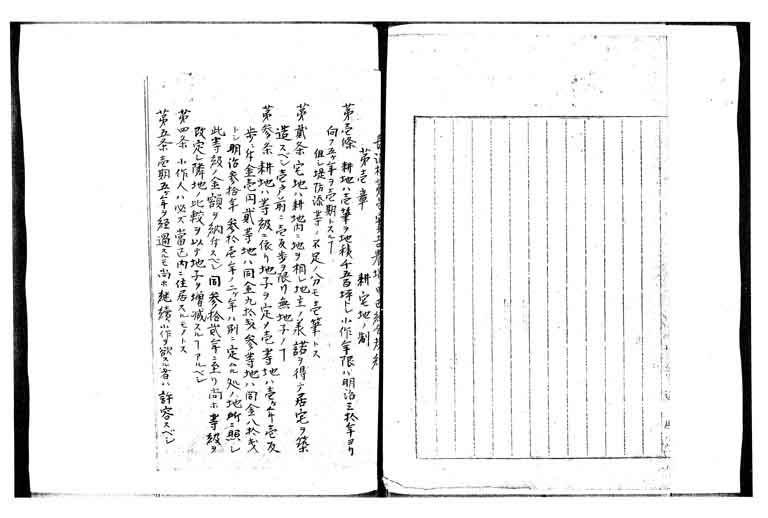 第壱章　耕宅地ノ制
第壱條　耕地ハ壱筆ヲ地積千五百坪トシ小作年限ハ明治三拾年ヨリ
向フ五ヶ年ヲ壱期トスルヿ
但シ堤防添等ノ不足ノ分モ壱筆トス
第貳条　宅地ハ耕地内ニ地ヲ相シ地主ノ承諾ヲ得テ居宅ヲ築
造スベシ壱戸前ニ壱反歩ヲ限リ無地子ノヿ
第参条　耕地ハ等級ニ依リ地子ヲ定メ壱等地ハ壱ヶ年壱反
歩ニ付金壱円貳等地ハ同金九拾戋参等地ハ同金八拾戋
トシ明治参拾年参拾壱年ノ二ヶ年ハ別ニ定ムル処ノ地所ニ照シ
此等級ノ金額ヲ納付スベシ同参拾貳年ニ至リ尚ホ等級ヲ
改定シ隣地ノ比較ヲ以テ地子ヲ増減スルヿアルベシ
第四条　小作人ハ必ズ當区内ニ住居スルモノトス
第五条　壱期五ヶ年ヲ経過スルモ尚ホ継續小作ヲ欲スル者ハ許容スベシ